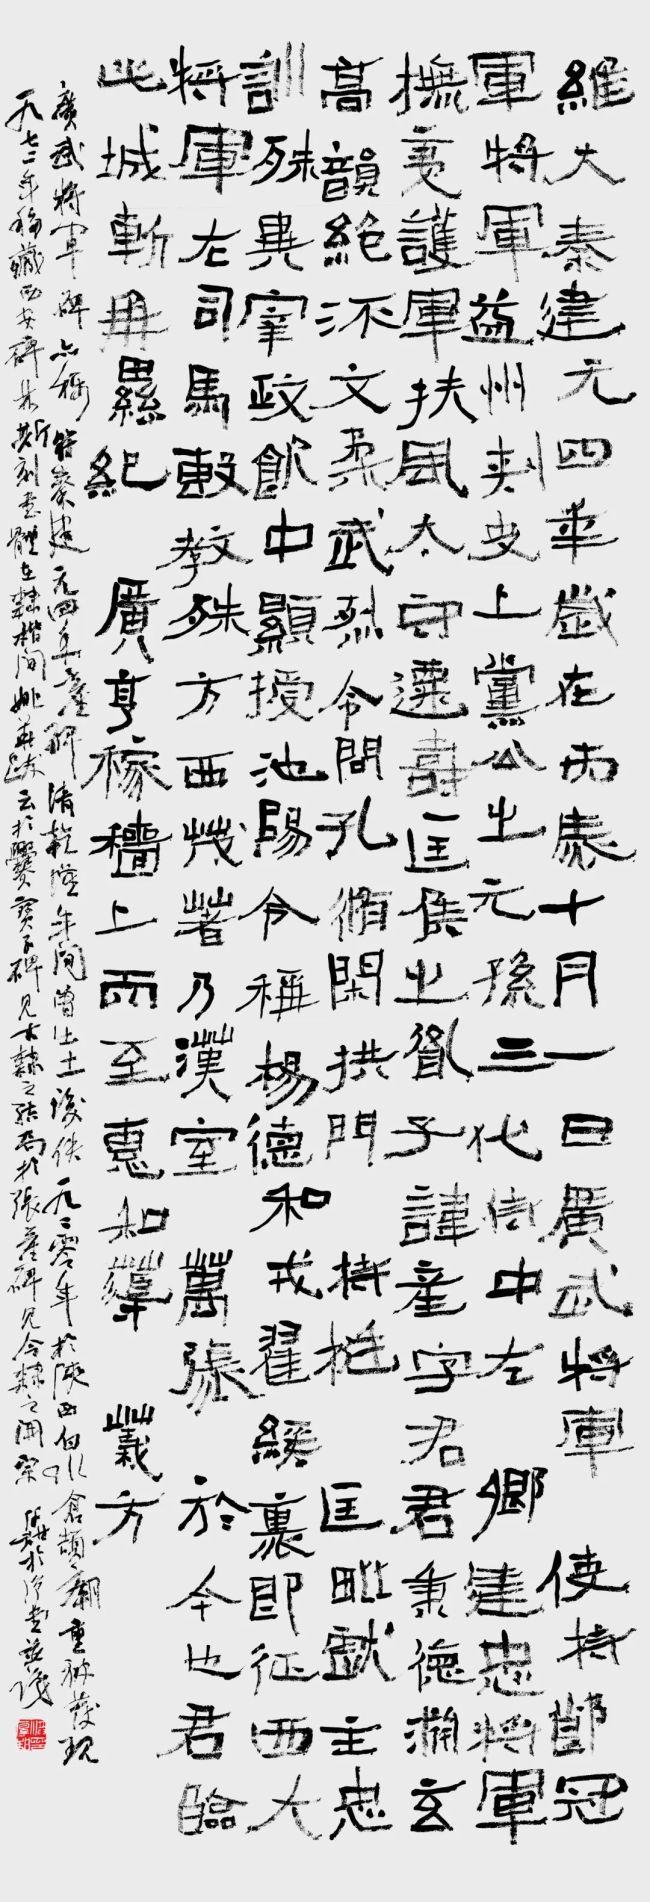 維大秦建元四年歲在丙辰十月一日廣武將軍 使持節冠
軍將軍益州刺史上黨公之元孫三代侍中左 卿建忠將軍
撫夷護軍扶風太守遷壽匡侯之胤子諱產字君君秉德淵玄
高韻絕汸文柔武烈令問孔脩閑拱門 持挺 匡毗獻主忠
訓殊異宰政欽中顯授池陽令稱楊德和戎翟綏裏即征西大
將軍左司馬敷教殊方西戎著乃漢室 萬張 於今也君臨
此城漸再累紀 廣享稼穡上而至惠和 義方
廣武將軍碑亦稱符秦建元四年產碑清乾隆年間曾出土後佚一九二零年於陝西白水倉頡廟重被發現
一九七二年移藏西安碑林斯刻書體在隸楷間姚華跋云於爨寶子碑見古隸之結局於張產碑見今隸之開宗